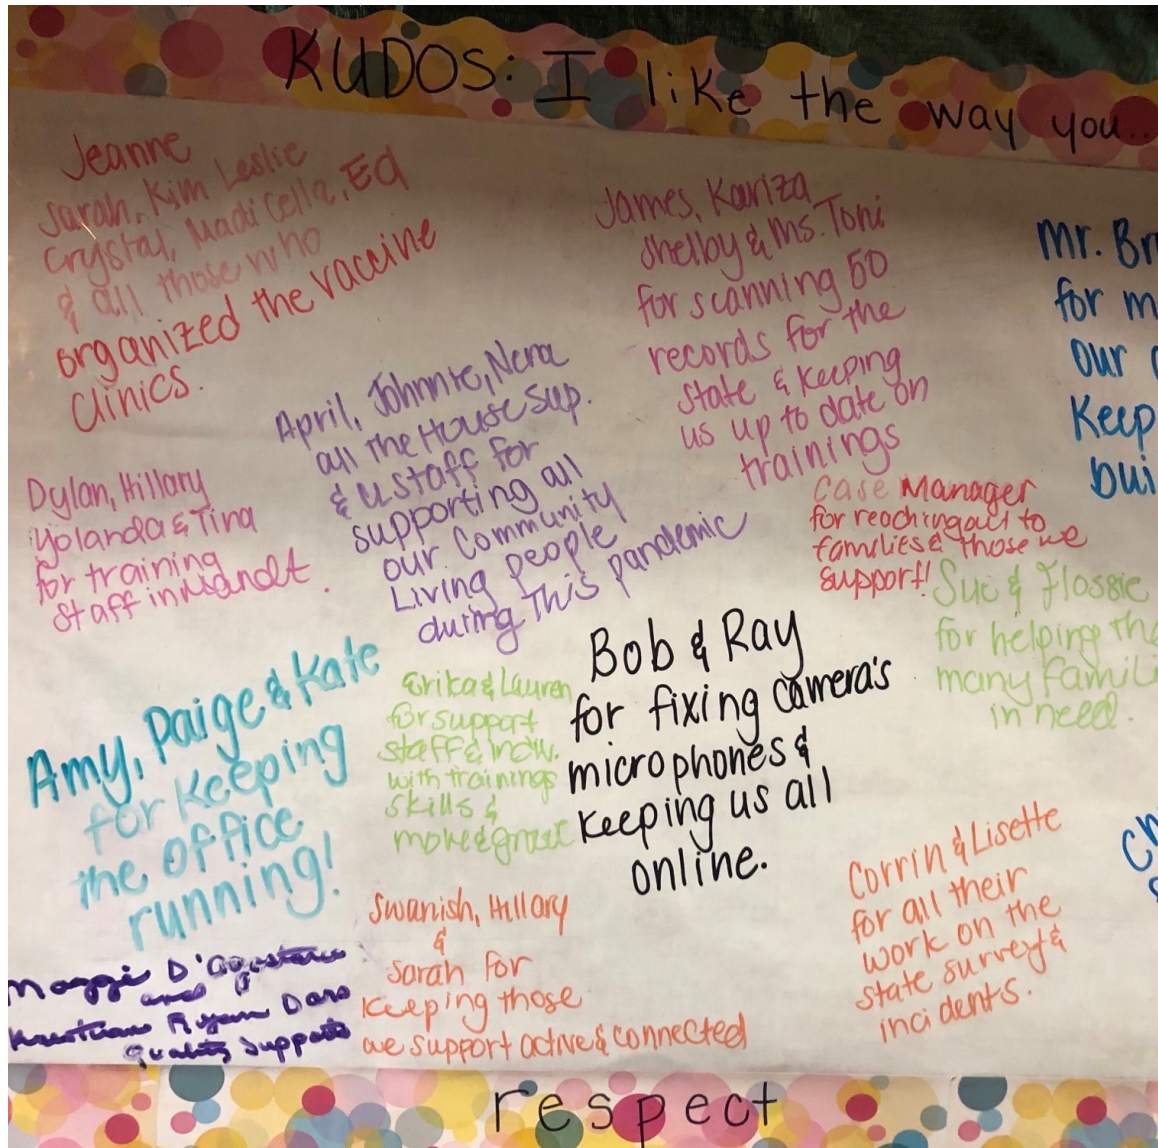 KUDOS: I like the way you...
Jeanne
Sarah, Kim Leslie
Crystal, Madi Cella, Ed
& all those who
organized the vaccine
Clinics.
James, Kariza
Shelby & Ms. Toni
for scanning 50
records for the
State & keeping
us up to date on
trainings
Mr. Br
for m
our
Keep
bui
April, Johnnie, Nena
all the House Sup.
& staff for
supporting all
our Community
Living people
during This pandemic
Dylan, Hillary
Yolanda & Tina
for training
Staff in Mandt.
Case Manager
for reaching out to
families & those we
support!
Sue & Flossie
for helping the
many famili
in need.
Amy, Paige & Kate
for keeping
the office
running!
Erika & Lauren
for support
staff & indiv.
with trainings
skills &
Bob & Ray
for fixing camera's
microphones &
keeping us all
online.
Swanish, Hillary
&
Sarah for
keeping those
we support active & connected
Corrin & Lisette
for all their
work on the
state survey &
incidents.
Ch
Maggie D'Agostino
and
Quality Supports
respect